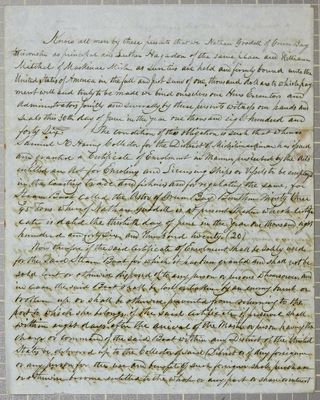 Know all men by these presents that we Nathan Goodell of Green Bay
Wisconsin as principal and Luther Hagadon of the same place and William
Mitchell of Mackinac Mich as sureties are held and firmly bound unto the
United States of America in the full and just sum of one thousand dollars to which pay
ment well and truly to be made we bind ourselves our Heirs Executors and
administrators jointly and severally by these presents witness our hands and
seals this 30th day of June in the year one thousand eight hundred and
forty six. The condition of this obligation is such that whereas
Samuel K Haring Collector for the District of Michilimackinac has issued
and granted a Certificate of Enrolment in manner prescribed by the Acts
entitled an Act for Enrolling and Licensing Ships or Vessels to be employed
in the Coasting trade and fisheries and for regulating the same, for
Steam Boat called the of Green Bay, Burthen Twenty
tons whereof Nathan Goodell is at present Master which Certifi
cate is dated this thirtieth day of June in the year one thousand eight
hundred and forty six, and Numbered twenty (20)
Now therefore if the said Certificate of Enrolment shall be solely used
for the said Steam Boat for which it has been granted and shall not be
sold lent or otherwise disposed of to any person or persons whomsoever, and
in case the said Boat shall be lost or taken by an enemy, burnt or
broken up or shall be otherwise prevented from returning to the
port to which she belongs if the said Certificate if preserved shall
within eight days after the arrival of the Master or person having the
charge or command of the said Boat within any District of the United
States be delivered up to the Collector of said District & if any foreigner
or any person for the use and benefit of such foreigner shall purchase
or otherwise become entitled to the whole or any part or share or interest